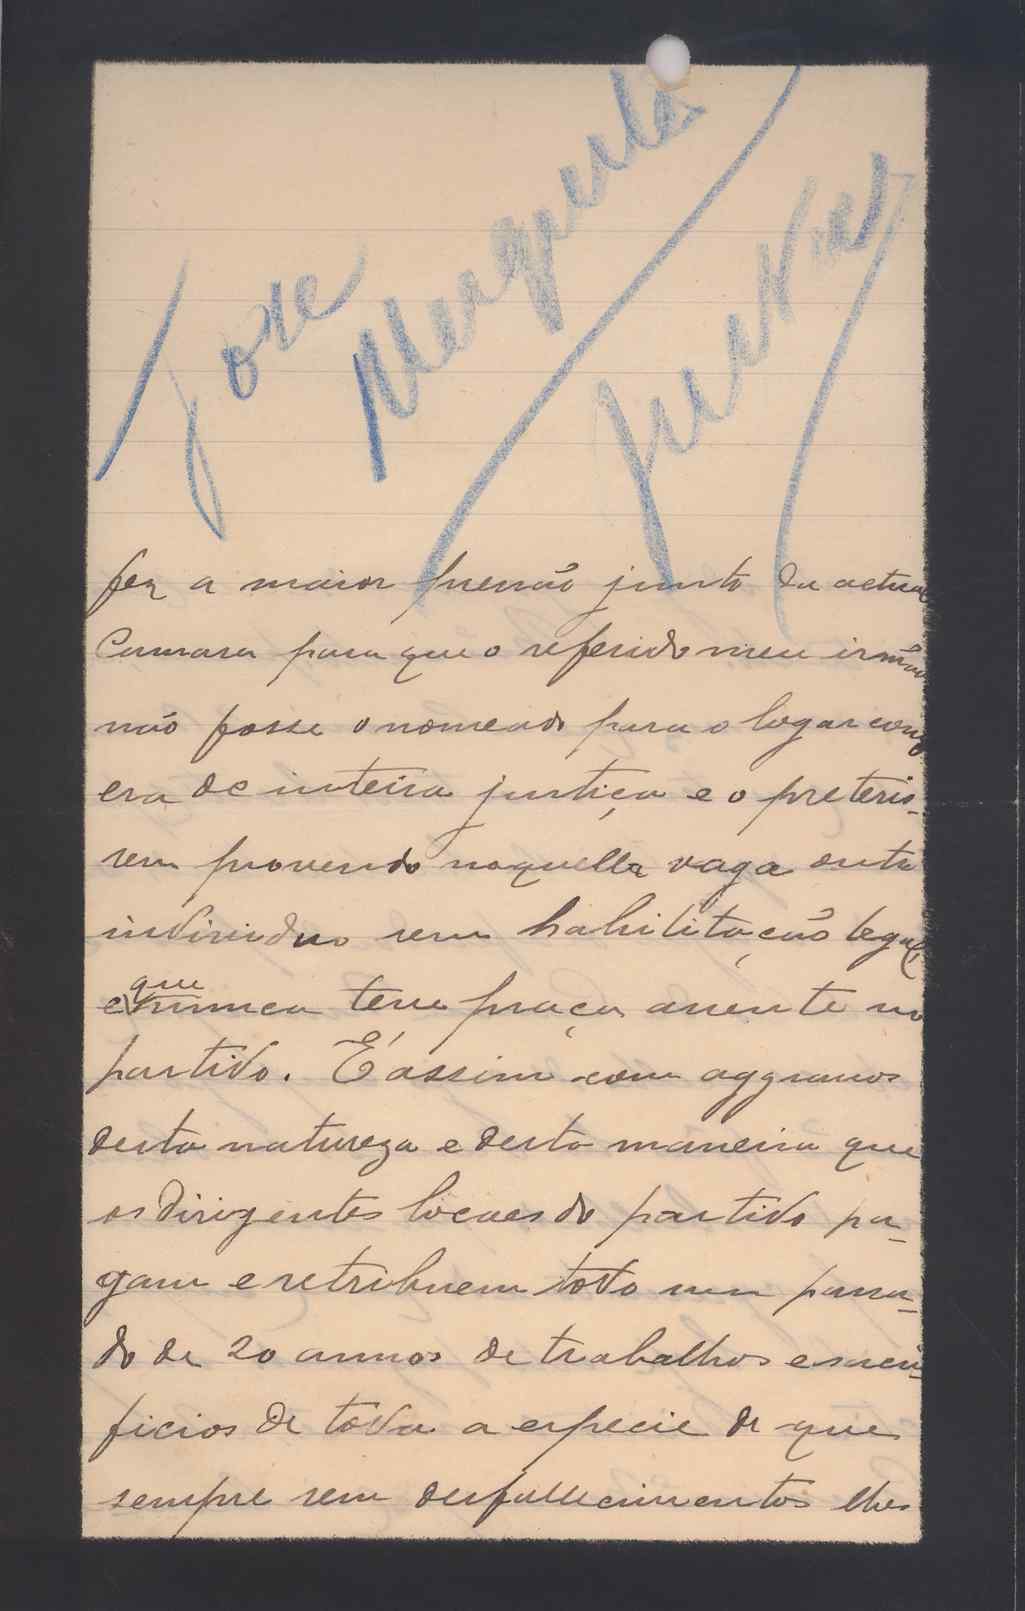 José
fez a maior pressão junto da actual
Camara para que o referido meu irmão
não fosse o nomeado para o logar como
era de inteira justiça e o preteris-
sem provendo naquella vaga outro
individuo sem habilitação legal,
e que nunca teve praça assente no
partido. É assim com aggravos
desta natureza e desta maneira que
os dirigentes locaes do partido pa-
gam e retribuem todo um passa-
do de 20 annos de trabalhos e sacri-
ficios de toda a especie de que
sempre sem desfallecimentos lhes